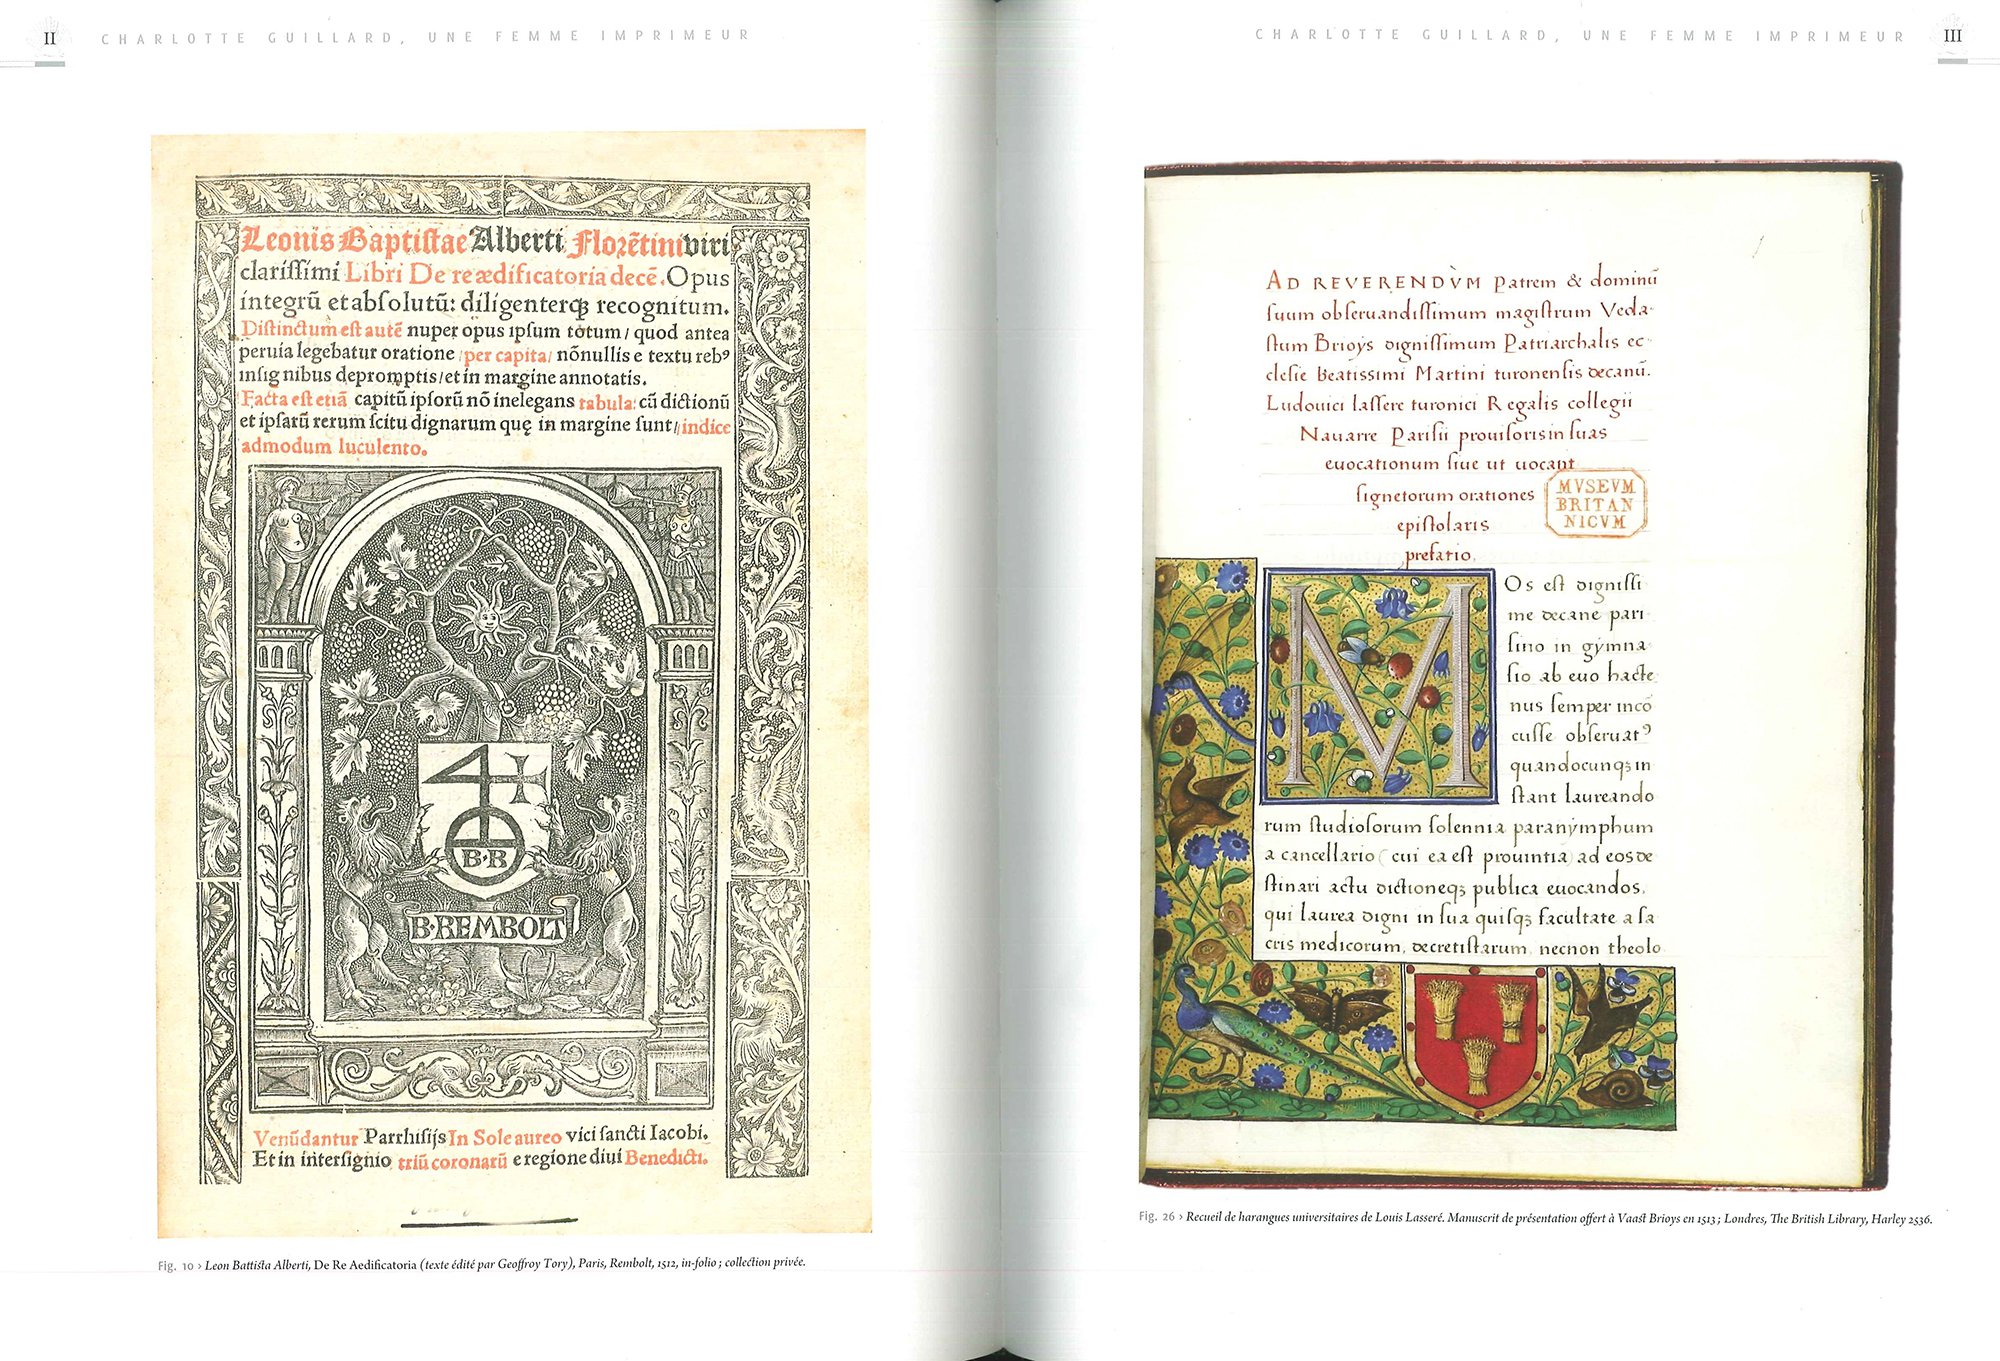 II
CHARLOTTE GUILLARD, UNE FEMME IMPRIMEUR
Leonis Baptistae Alberti Florētini viri
clarissimi Libri De re ædificatoria decē. Opus
integrū et absolutū: diligenterqȝ recognitum.
Distinctum est autē nuper opus ipsum totum/ quod antea
peruia legebatur oratione /per capita/ nōnullis e textu rebꝰ
insignibus depromptis/ et in margine annotatis.
Facta est etiā capitū ipsorū nō inelegans tabula: cū dictionū
et ipsarū rerum scitu dignarum quę in margine sunt/ indice
admodum luculento.
B·R
B·REMBOLT
Venūdantur Parrhisijs In Sole aureo vici sancti Iacobi.
Et in intersignio triū coronarū e regione diui Benedicti.
Fig. 10 › Leon Battista Alberti, De Re Aedificatoria (texte édité par Geoffroy Tory), Paris, Rembolt, 1512, in-folio ; collection privée.
CHARLOTTE GUILLARD, UNE FEMME IMPRIMEUR
III
AD REVERENDVM Patrem & dominū
suum obseruandissimum magistrum Veda-
stum Brioys dignissimum Patriarchalis ec-
clesie beatissimi Martini turonensis decanū.
Ludouici lassere turonici Regalis collegii
Nauarre Parisii prouisoris in suas
euocationum siue ut uocant
signetorum orationes
epistolaris
prefatio.
MVSEVM
BRITAN
NICVM
MOs est dignissi
me decane pari-
sino in gymna-
sio ab euo hacte
nus semper incō
cusse obseruatꝰ
quandocunqȝ in
stant laureando
rum studiosorum solennia paranymphum
a cancellario (cui ea est prouintia) ad eos de
stinari actu dictioneqȝ publica euocandos,
qui laurea digni in sua quisqȝ facultate a sa
cris medicorum, decretistarum, necnon theolo
Fig. 26 › Recueil de harangues universitaires de Louis Lasseré. Manuscrit de présentation offert à Vaast Brioys en 1513 ; Londres, The British Library, Harley 2536.